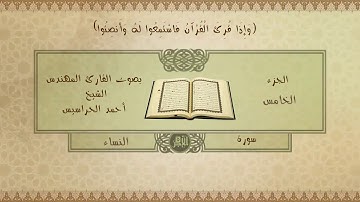 (وإذا قرئ القرآن فاستمعوا له وأنصتوا)
الجزء
الخامس
بصوت القارئ المهندس
الشيخ
أحمد الحراسيس
سورة
النساء